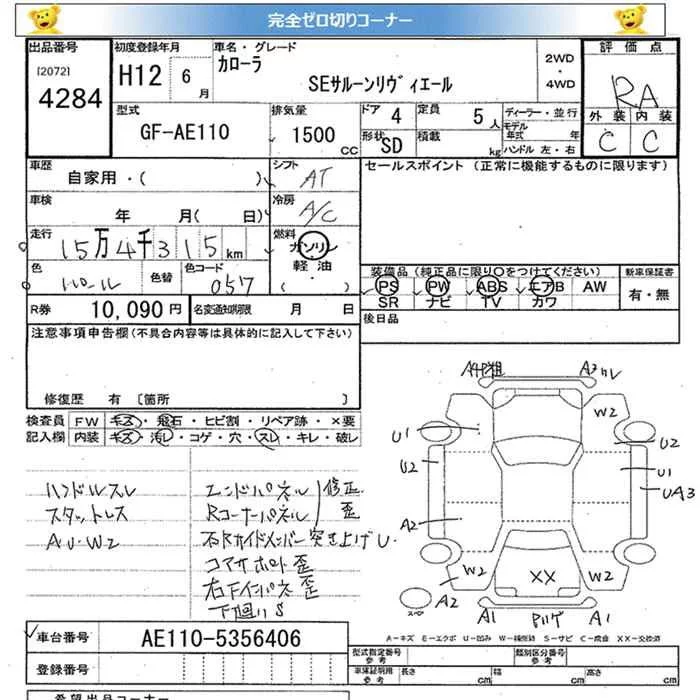 完全ゼロ切りコーナー
出品番号 初度登録年月 車名・グレード 評価点
[2072] H12 6月 カローラ 2WD・4WD
4284 SEサルーンリヴィエール RA
型式 排気量 ドア 4 定員 5人 ディーラー・並行 外装 内装
GF-AE110 1500cc 形状 SD 積載 kg モデル年式 年 C C
ハンドル 左・右
車歴 シフト セールスポイント (正常に機能するものに限ります)
自家用・( ) AT
車検 冷房
年 月( 日) A/C
走行 燃料
15万4千315km ガソリン
色 色替 色コード 軽油 装備品 (純正品に限り○をつけてください) 新車保証書
パール 057 ( ・ ) PS PW ABS エアB AW 有・無
R券 10,090円 名変通知期限 月 日 SR ナビ TV カワ
注意事項申告欄(不具合内容等は具体的に記入して下さい) 後日品
修復歴 有 [箇所 ]
検査員 FW キズ・飛石・ヒビ割・リペア跡・×要
記入欄 内装 キズ・汚レ・コゲ・穴・スレ・キレ・破レ
A4P粗
W2
U1 U2
U2 U1
UA3
A2
ハンドルスレ エンドパネル 修正
スタットレス Rコーナーパネル 歪
AU・W2 右Rサイドメンバー突き上げU.
コアサポート歪
右Fインパネ歪
W2 XX W2
A2
A1 A1
車台番号 AE110-5356406
A-キズ E-エクボ U-凹み W-補修跡 S-サビ C-腐食 XX-交換済
登録番号 型式指定番号 参考 類別区分番号 参考
車体証明用 参考 長さ cm 幅 cm 高さ cm
希望出品コーナー